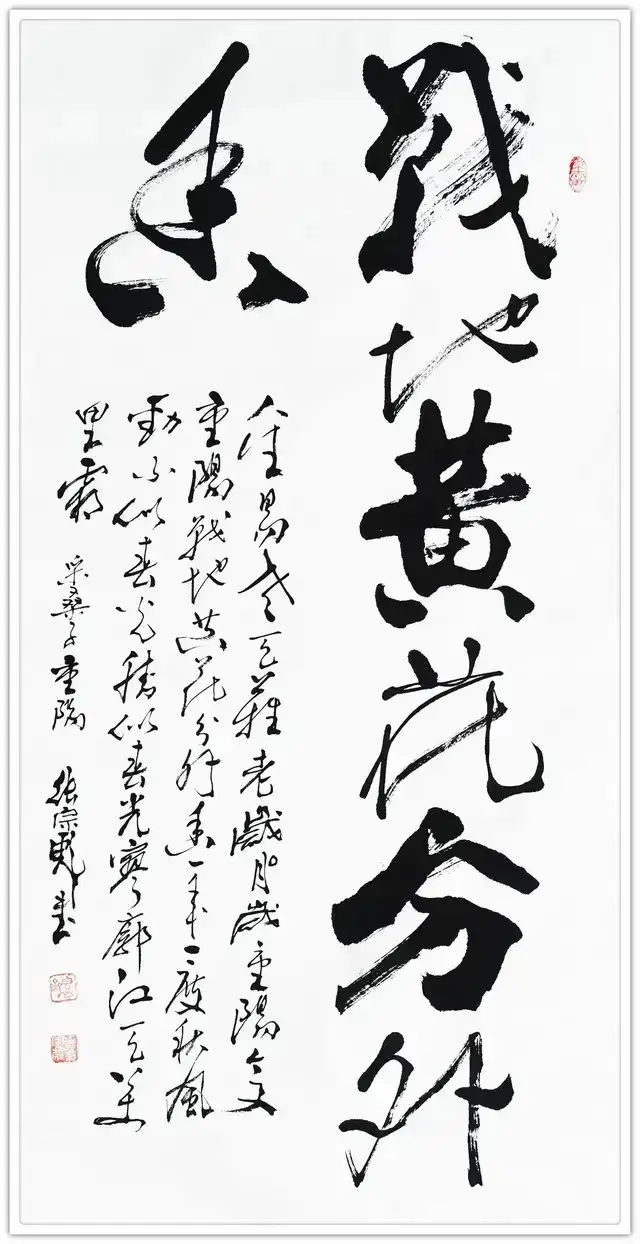 戰地黃花分外
香
人生易老天難老歲月歲重陽今又
重陽戰地黃花分外香一年一度秋風
勁不似春光勝似春光寥廓江天萬
里霜 采桑子重陽 張宗書